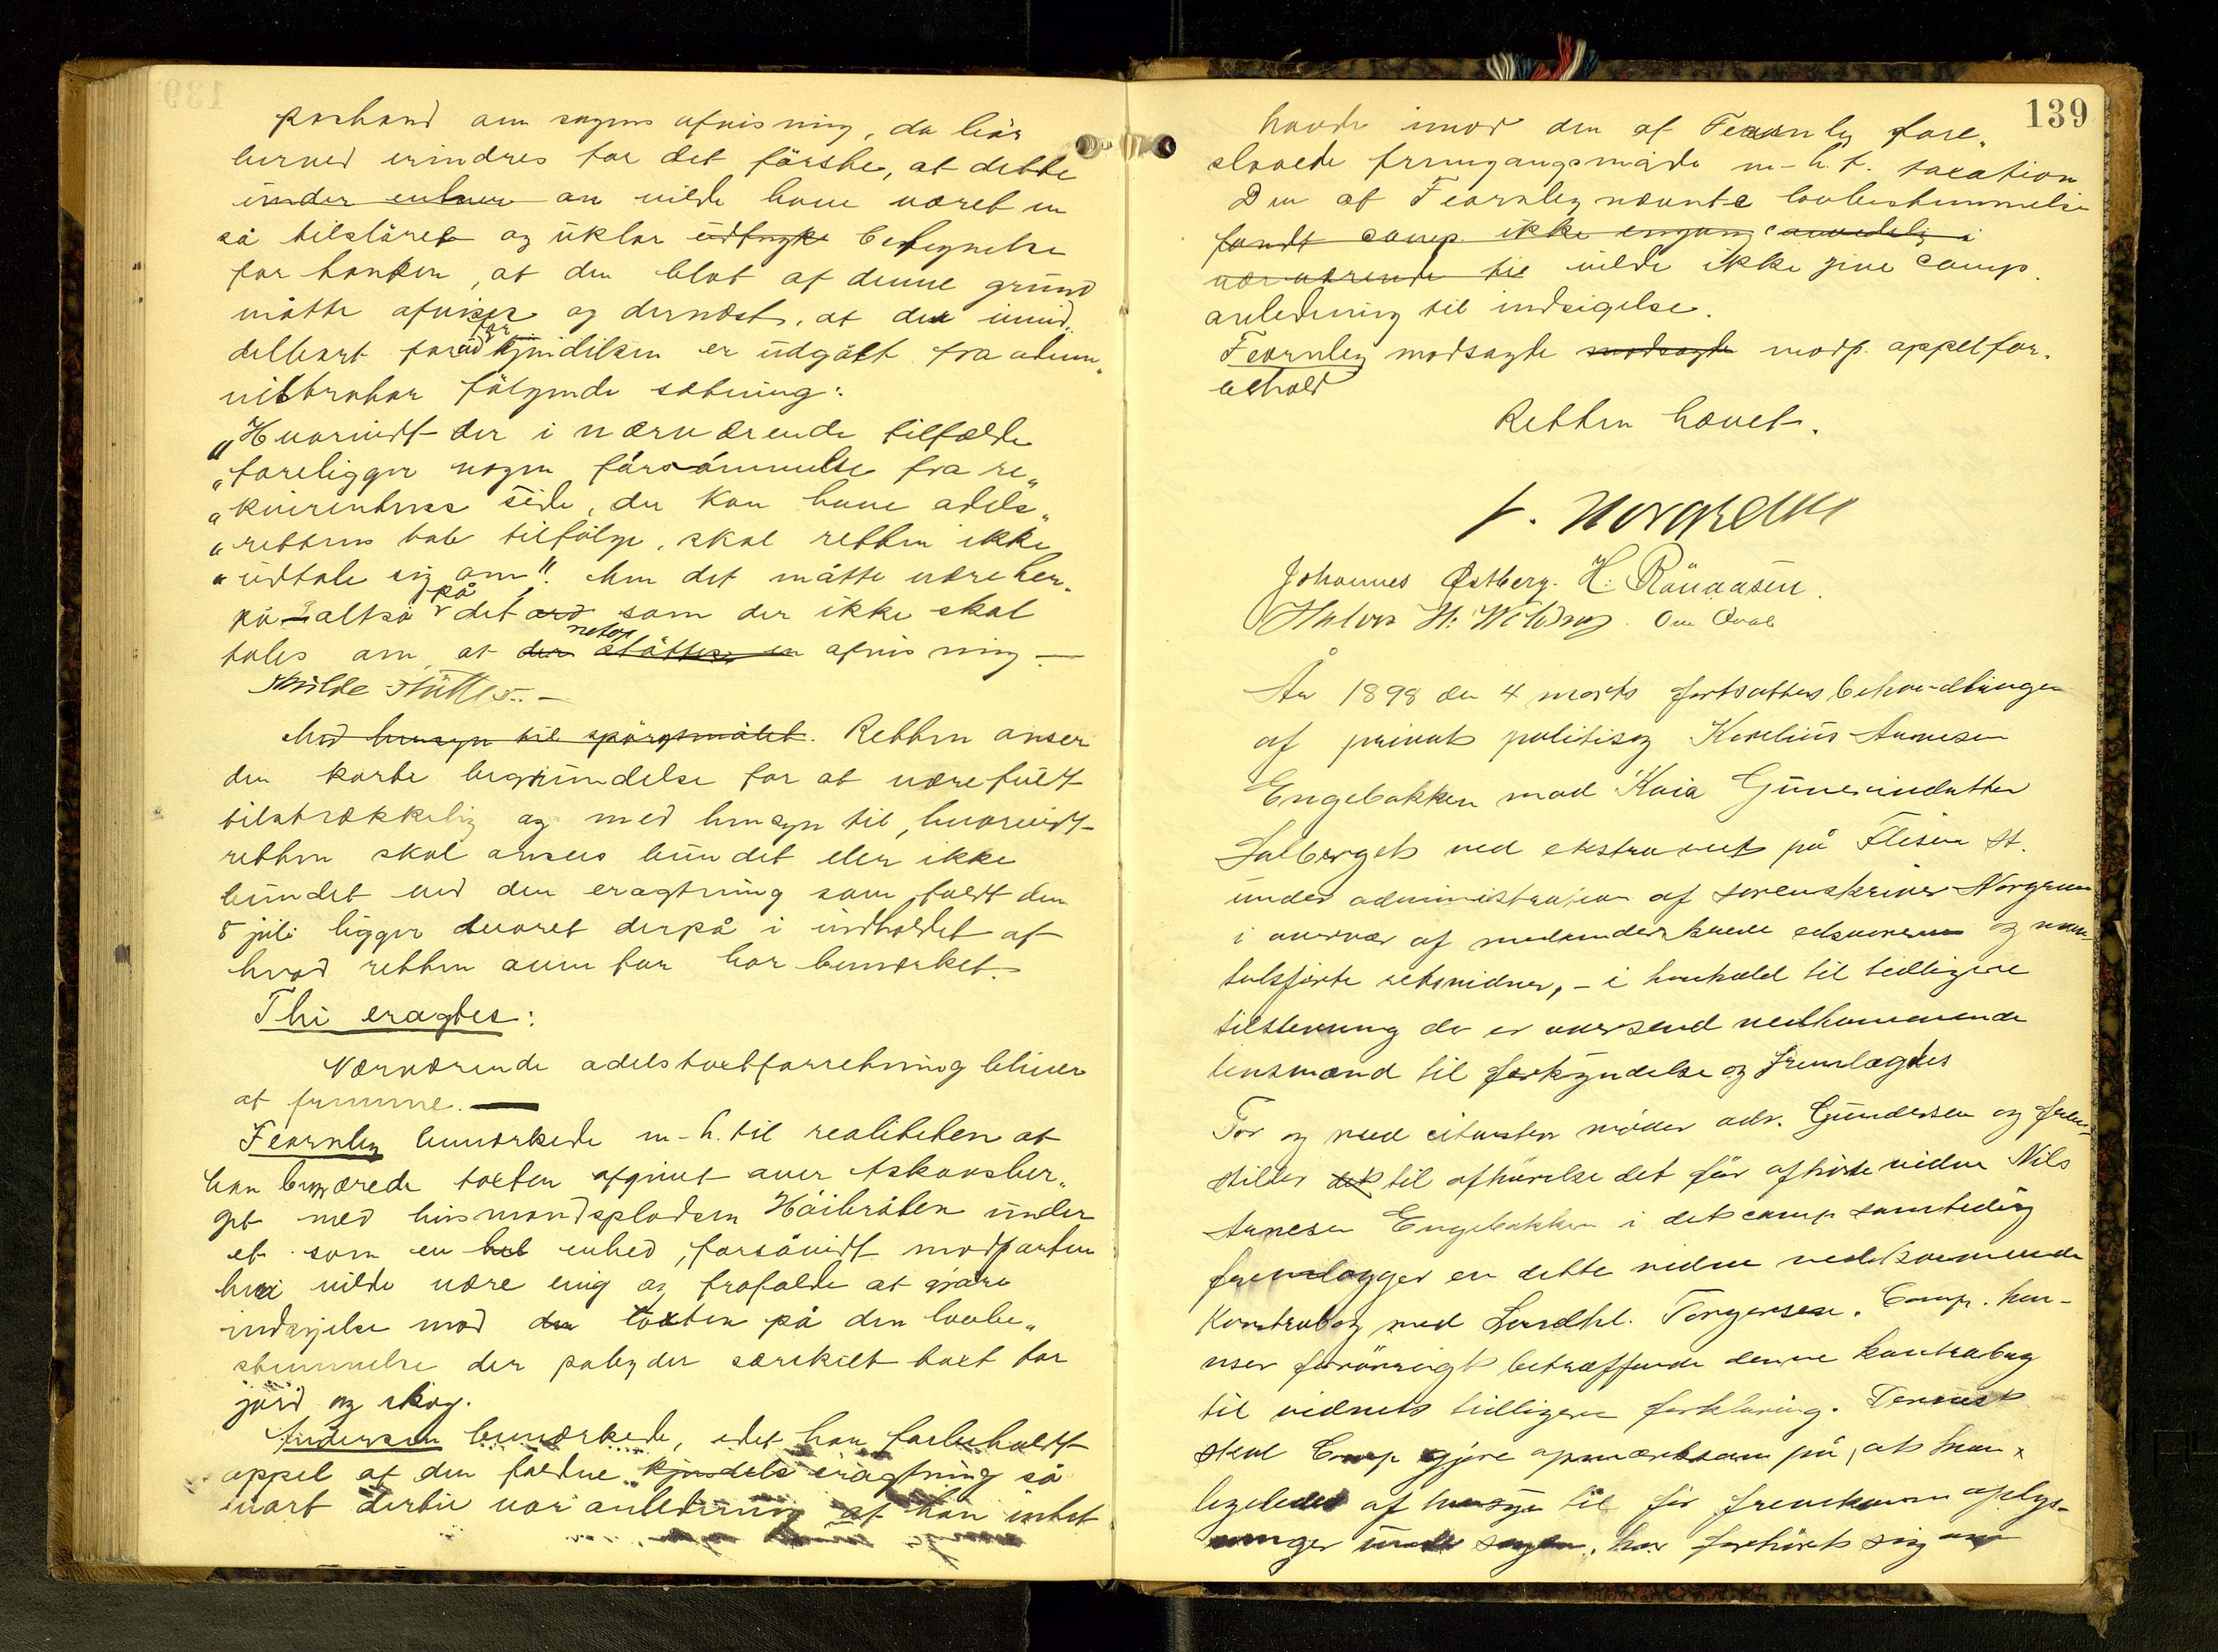 påstand om sagens afvisning, da bör
herved erindres for det förste, at dette
under enhver an vilde have været en
så tilsløret og uklar udtrykt betegnelse
for tanken, at den blot af denne grund
måtte afvises og dernæst, at der imid„
delbart forud for kjendelsen er udgået fra admi„
nistrator fölgende sætning:
„Hvorvidt der i nærværende tilfælde
„foreligger nogen forsömmelse fra re„
„kvirentens side, der kan have odels„
„rettens tab tilfölge, skal retten ikke
„udtale sig om". Men det måtte være her„
på altså på det ord som der ikke skal
tales om, at der netop støttes en afvisning —
skulde støttes. —
Med hensyn til spörgsmålet. Retten anser
den korte begrundelse for at være fuldt
tilstrækkelig og med hensyn til, hvorvidt
retten skal ansees bundet eller ikke
bundet ved den eragtning som faldt den
5 juli ligger svaret derpå i indholdet af
hvad retten ovenfor har bemærket.
Thi eragtes:
Nærværende odelstaxtforretning bliver
at fremme. —
Fearnley bemærkede m-h. til realiteten at
han begjærede taxten afgivet over Askonsber„
get med husmandspladsen Höibråten under
et som en hel enhed, forsåvidt modparten
heri vilde være enig og frafalde at gjöre
indsigelse mod den taxten på den lovbe„
stemmelse der påbyder særskilt taxt for
jord og skog.
Andersen bemærkede, idet han forbeholdt
appel af den faldne kjendels eragtning så
vart dertil var anledning at han intet
139
havde imod den af Fearnley fore„
slåede fremgangsmåde m-h.t. taxation
Den af Fearnley nævnte lovbestemmelse
fandt comp. ikke engang anvendelig i
nærværende til vilde ikke give comp.
anledning til indsigelse.
Fearnley modsagte modsagte modp. appelfor„
behold
Retten hævet.
Norgrenn
Johannes Østberg. H. Rånaasen.
Halvor H. Wilberg. Ole Qvale
År 1898 den 4 marts fortsattes behandlingen
af privat politisag Kornelius Arnesen
Engebakken mod Kaia Guneriusdatter
Salberget ved ekstraret på Flisen St.
under administration af sorenskriver Norgrenn
i overvær af medunderskrevne edsvorne og man„
talsførte retsvidner, — i henhold til tidligere
tilstevning der er oversend vedkommende
lensmand til forkyndelse og fremlægdes
For og med citanten møder adv. Gundersen og frem„
stiller det til afhørelse det før afhørte vidne Nils
Arnesen Engebakken i det comp samtidig
fremlægger en dette vidne vedkommende
Kontrabog med Landhl. Torgersen. Comp. hen-
viser forøvrigt betræffende denne kontrabog
til vidnets tidligere forklaring. Dernæst
skal Comp gjøre opmærksom på, at han
ligeledes af hensyn til før fremkomne oplys-
ninger under sagen, har forhørt sig om